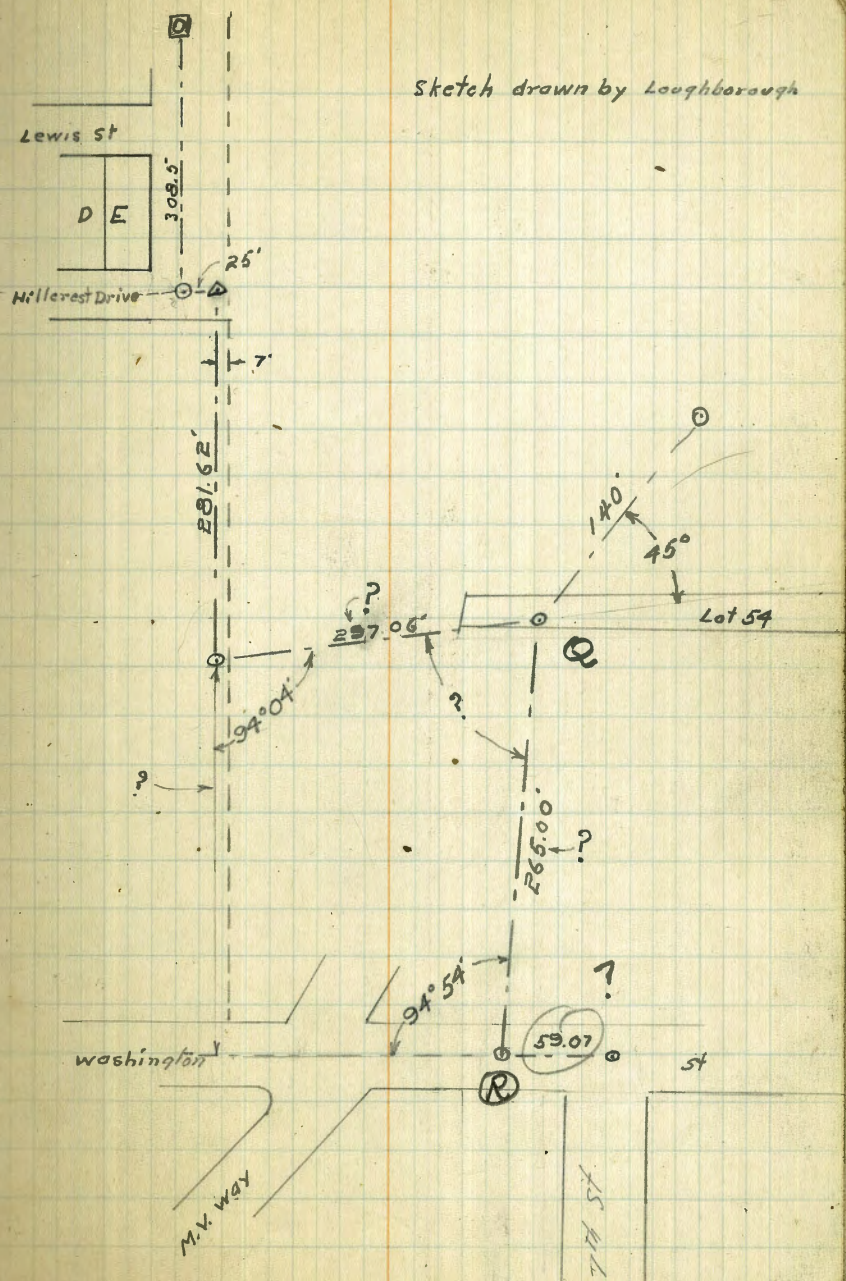 Sketch drawn by Loughborough
Lewis St
308.5
D E
25'
Hillcrest Drive
7'
281.62'
140'
45°
?
297.06'
Lot 54
Q
94°04'
?
?
265.00'
?
94°54'
?
59.07
Washington
St
R
M.V. WAY